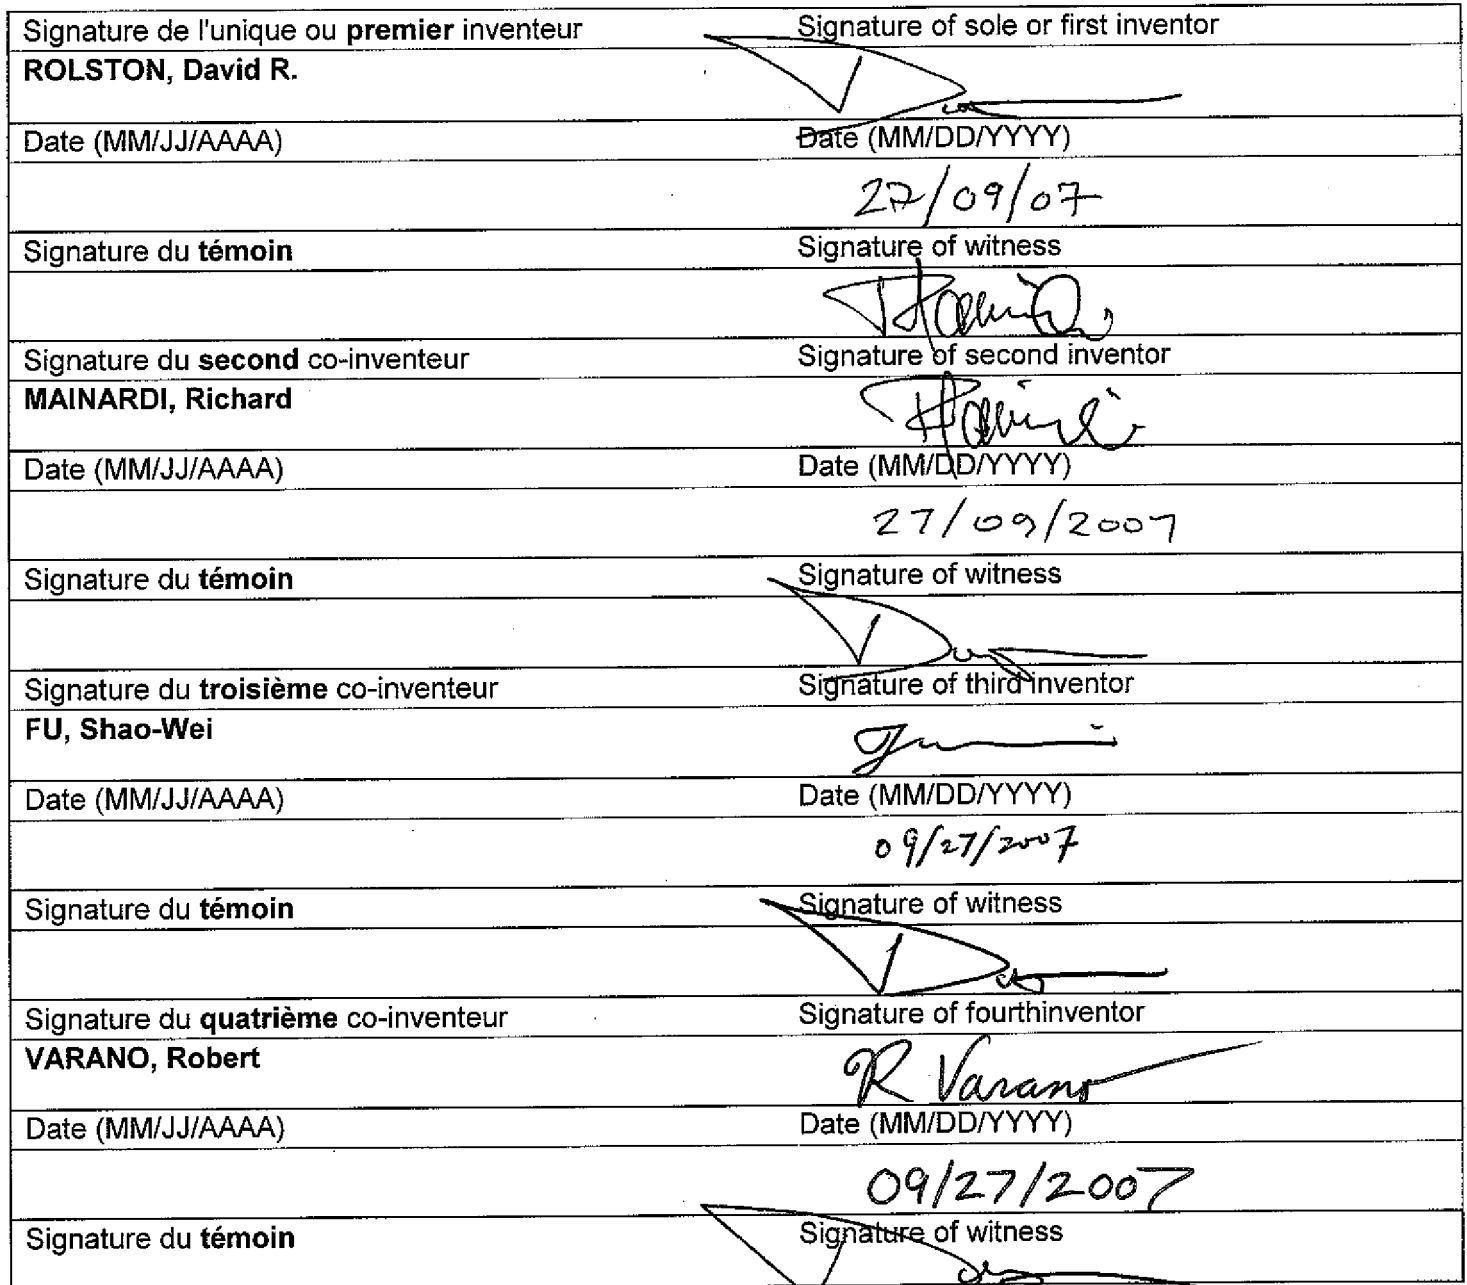 Signature de l'unique ou premier inventeur Signature of sole or first inventor
ROLSTON, David R.
Date (MM/JJ/AAAA) Date (MM/DD/YYYY)
27/09/07
Signature du témoin Signature of witness
Signature du second co-inventeur Signature of second inventor
MAINARDI, Richard
Date (MM/JJ/AAAA) Date (MM/DD/YYYY)
27/09/2007
Signature du témoin Signature of witness
Signature du troisième co-inventeur Signature of third inventor
FU, Shao-Wei
Date (MM/JJ/AAAA) Date (MM/DD/YYYY)
09/27/2007
Signature du témoin Signature of witness
Signature du quatrième co-inventeur Signature of fourthinventor
VARANO, Robert R Varano
Date (MM/JJ/AAAA) Date (MM/DD/YYYY)
09/27/2007
Signature du témoin Signature of witness